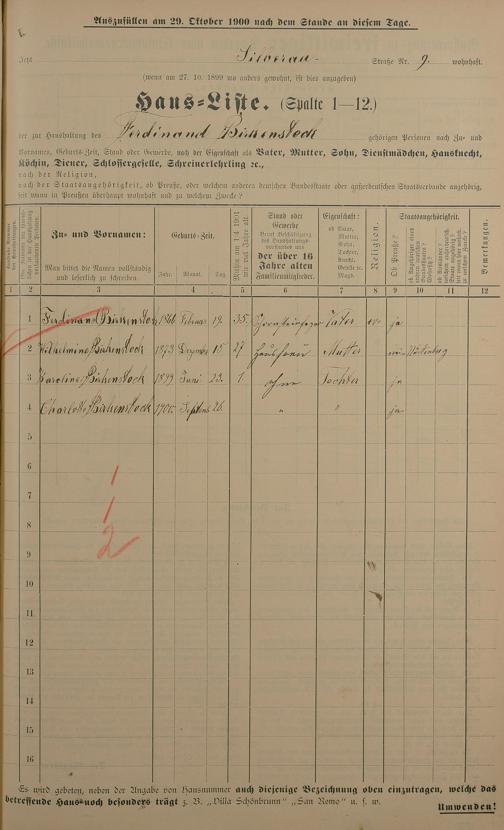 Auszufüllen am 29. Oktober 1900 nach dem Stande an diesem Tage.
Straße Nr. 9. wohnhaft.
(wenn am 27. 10. 1899 wo anders gewohnt, ist dies anzugeben)
Haus-Liste. (Spalte 1—12.)
der zur Haushaltung des Ferdinand Birkenstock gehörigen Personen nach Zu- und
Vornamen, Geburts-Zeit, Stand oder Gewerbe, nach der Eigenschaft als Vater, Mutter, Sohn, Dienstmädchen, Hausknecht,
Köchin, Diener, Schlossergeselle, Schreinerlehrling ꝛc.,
nach der Religion,
nach der Staatsangehörigkeit, ob Preuße, oder welchem anderen deutschen Bundesstaate oder außerdeutschen Staatsverbande angehörig,
seit wann in Preußen überhaupt wohnhaft und zu welchem Zwecke?
Zu- und Vornamen:
Man bittet die Namen vollständig
und leserlich zu schreiben
Geburts-Zeit.
Jahr. Monat. Tag.
Stand oder
Gewerbe
der über 16
Jahre alten
Familienmitglieder.
Eigenschaft:
ob Vater,
Mutter,
Sohn,
Tochter,
Knecht,
Geselle ꝛc.
Magd.
Religion.
Staatsangehörigkeit.
Ob Preuße?
Bemerkungen.
1 2 3 4 5 6 7 8 9 10 11 12
1 Ferdinand Birkenstock 1866 Februar 19. 35. Schornsteinfeger Vater ev. ja
2 Wilhelmine Birkenstock 1873 Dezember 15 27 Hausfrau Mutter
3 Karoline Birkenstock 1899 Juni 23. 1. ohne Tochter ja
4 Charlotte Birkenstock 1900. 26. " " ja
5
6
7
8
9
10
11
12
13
14
15
16
1
1
2
Es wird gebeten, neben der Angabe von Hausnummer auch diejenige Bezeichnung oben einzutragen, welche das
betreffende Haus noch besonders trägt z. B. „Villa Schönbrunn" „San Remo" u. s. w.
Umwenden!